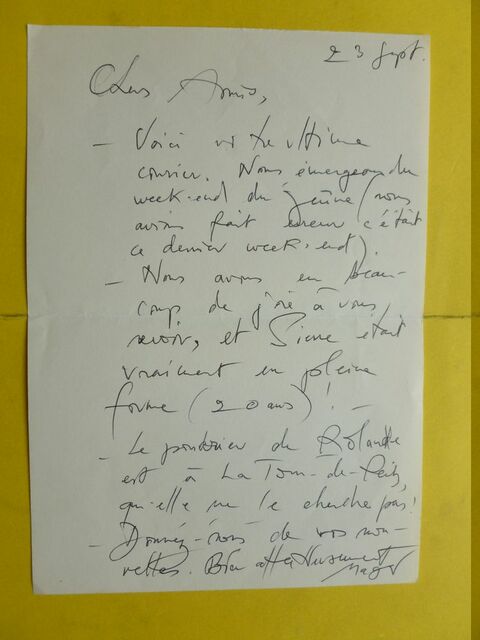 23 Sept.
Chers Amis,
– Voici votre ultime
courrier. Nous émergeons du
week-end du jeûne (nous
avions fait erreur c'était
ce dernier week-end)
– Nous avons eu beau-
coup de joie à vous
revoir, et était
vraiment en pleine
forme (20 ans)! –
– Le poudrier de Rolande
est à La Tour-de-Peilz,
qu'elle ne le cherche pas!
– Donnez-nous de vos nou-
velles. Bien affectueusement